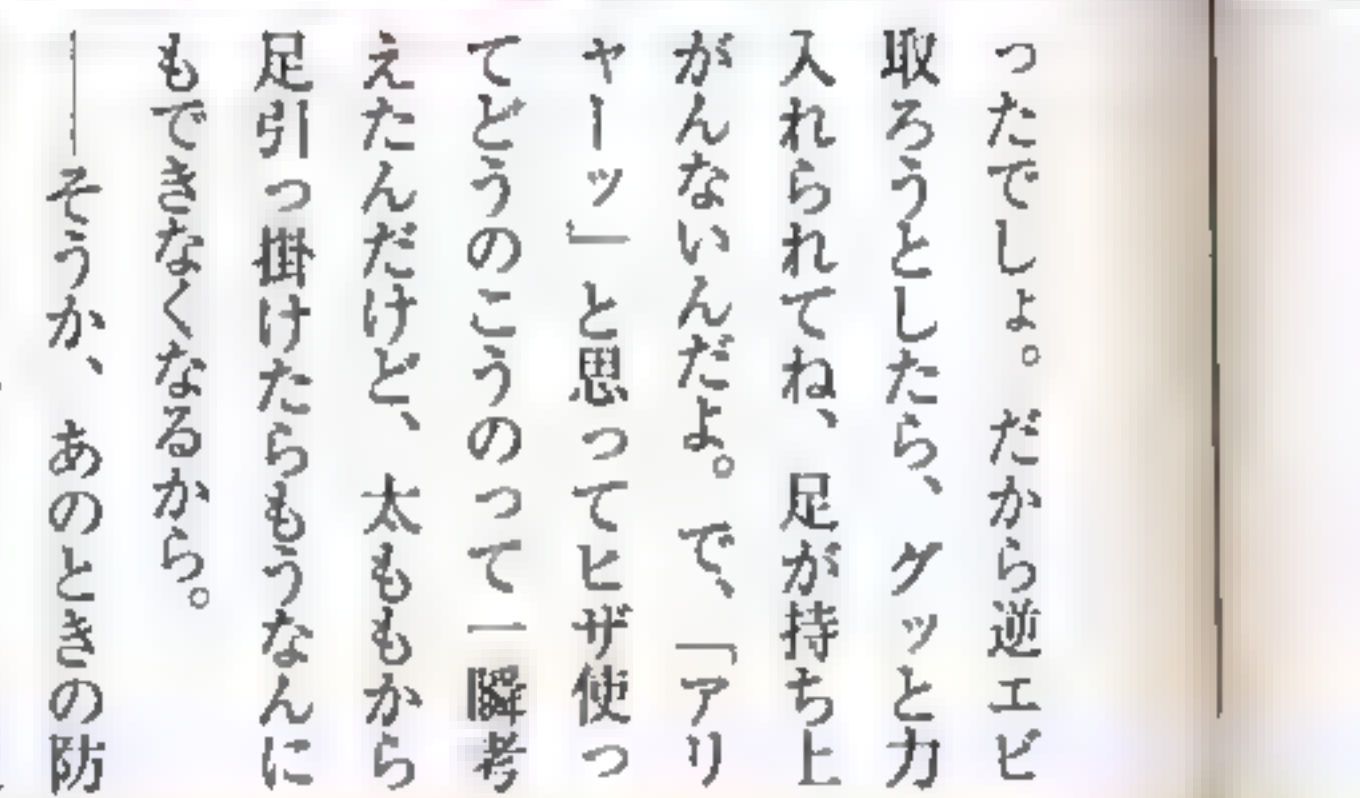 ったでしょ。だから逆エビ
取ろうとしたら、グッと力
入れられてね、足が持ち上
がんないんだよ。で、「アリ
ャーッ」と思ってヒザ使っ
てどうのこうのって一瞬考
えたんだけど、太ももから
足引っ掛けたらもうなんに
もできなくなるから。
――そうか、あのときの防